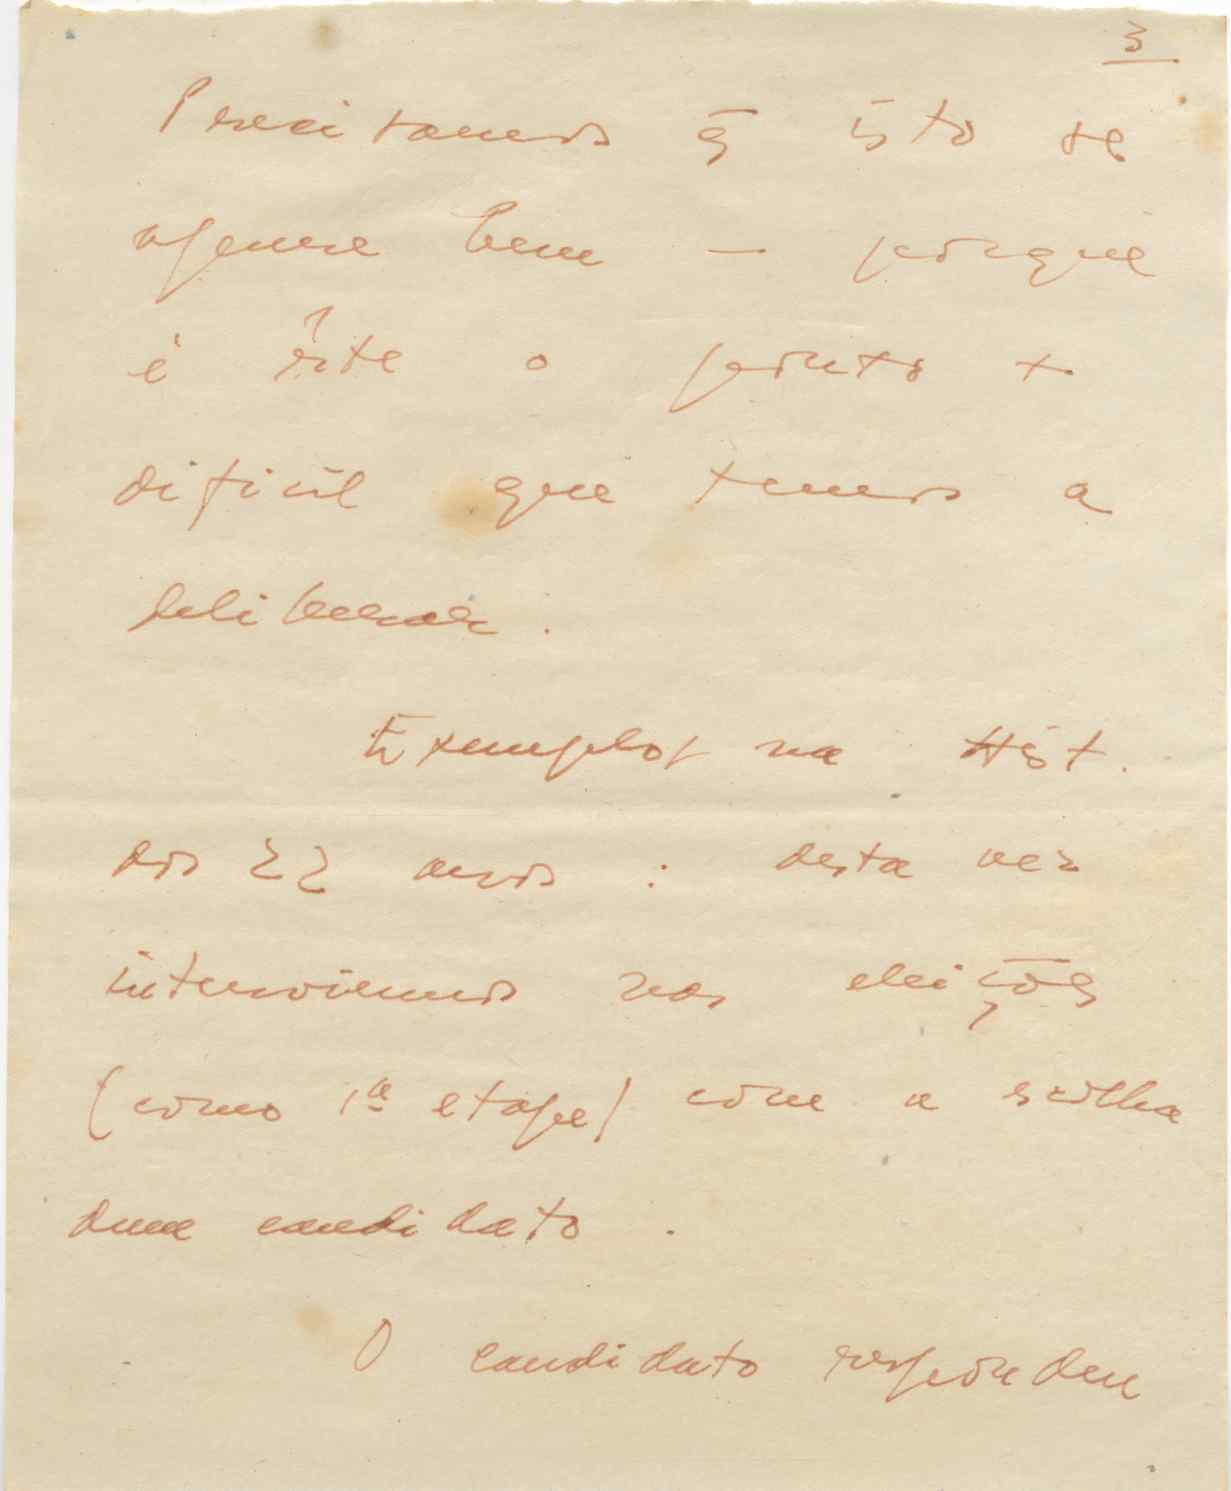 3
Precisamos q̃ isto se
apure bem — porque
é êste o ponto +
difícil que temos a
deliberar.
Exemplos na Hist.
dos 22 anos : desta vez
interviemos nas eleições
(como 1ª etape) com a escolha
dum candidato.
O candidato respondeu